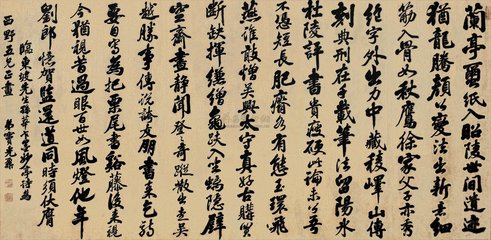 蘭亭繭紙入昭陵世間遺迹
猶龍騰顏公變法出新意細
筋入骨如秋鷹徐家父子亦秀
絕字外出力中藏稜嶧山傳
刻典刑在千載筆法留陽冰
杜陵評書貴瘦硬此論未公吾
不憑短長肥瘠各有態玉環飛
燕誰敢憎吳興太守真好古購買
斷缺揮縑繒龜趺入坐螭隱壁
空齋晝靜聞登登奇蹤散出走吳
越勝事傳說誇友朋書來乞詩
要自寫為把栗尾書谿藤後來視
今猶視昔過眼百世如風燈他年
劉郎憶賀監還道同時須服膺
臨東坡先生孫莘老墨妙亭詩為
西野五兄正